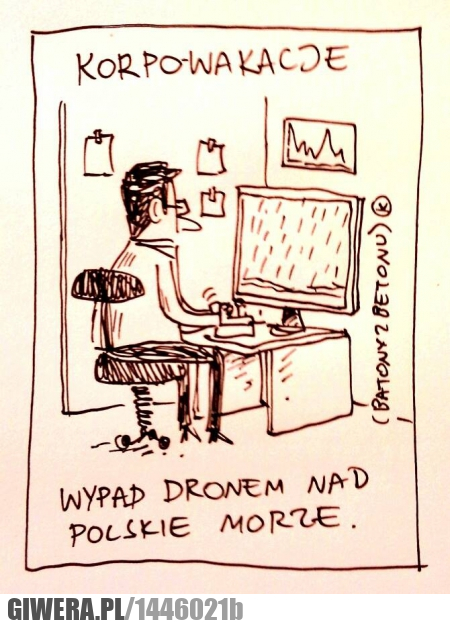 KORPO-WAKACJE
(BATONYZBETONU) K
WYPAD DRONEM NAD
POLSKIE MORZE.
GIWERA.PL/1446021b